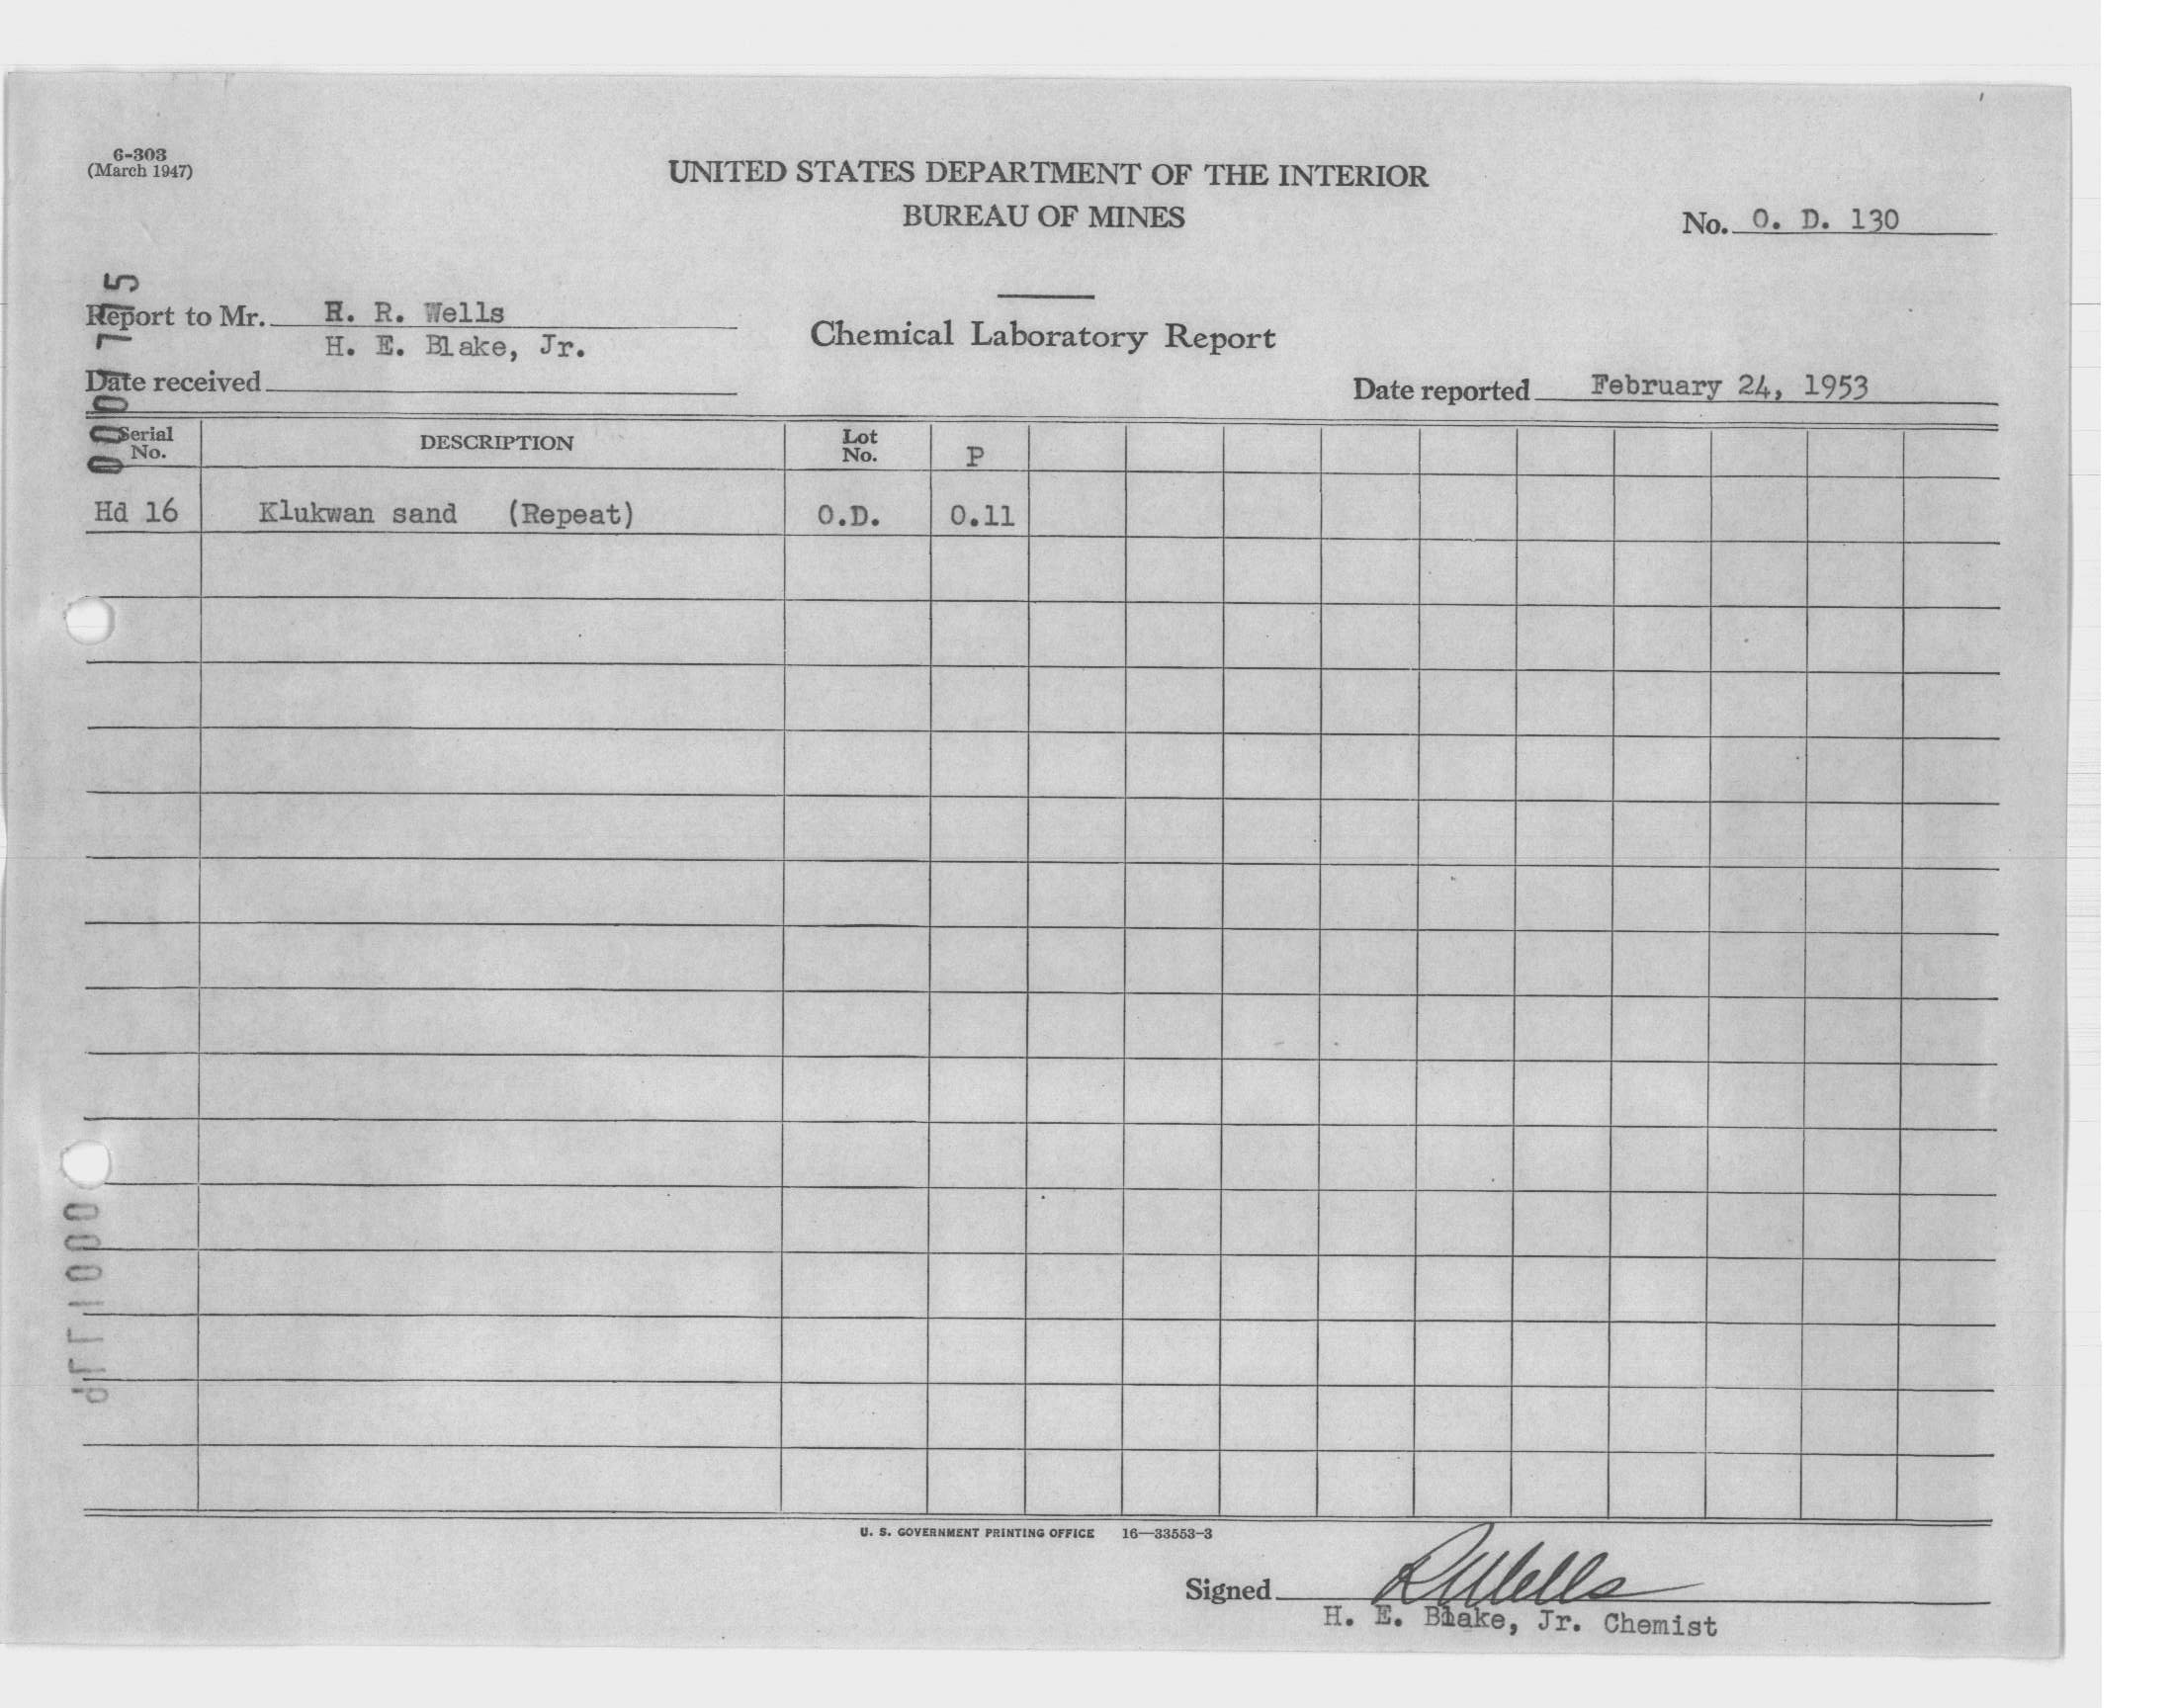 6-303
(March 1947)
UNITED STATES DEPARTMENT OF THE INTERIOR
BUREAU OF MINES
No. O. D. 130
Report to Mr. R. R. Wells
H. E. Blake, Jr.
Chemical Laboratory Report
Date received
Date reported February 24, 1953
Serial No. DESCRIPTION Lot No. P
Hd 16 Klukwan sand (Repeat) O.D. 0.11
U. S. GOVERNMENT PRINTING OFFICE 16—33553-3
Signed RWells
H. E. Blake, Jr. Chemist